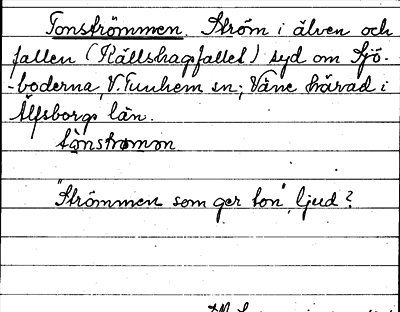 Tonströmmen. Ström i älven och
fallen (Källshagsfallet) syd om Sjö-
-boderna, V. Tunhem sn; Väne härad i
Älfsborgs län.
tònstrømən
"Strömmen som ger ton", ljud?